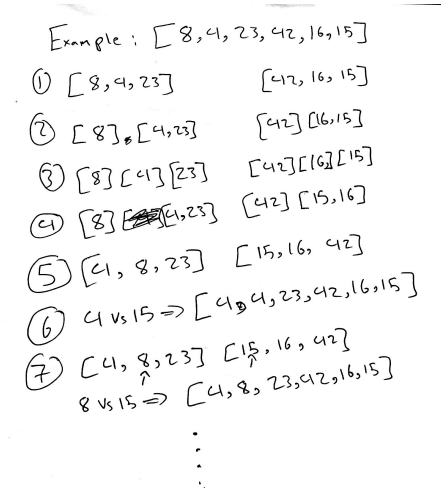 Example: [8,4,23,42,16,15]
① [8,4,23] [42,16,15]
② [8],[4,23] [42][16,15]
③ [8][4][23] [42][16][15]
④ [8] [4,23] [42][15,16]
⑤ [4,8,23] [15,16,42]
⑥ 4 vs 15 => [4,4,23,42,16,15]
⑦ [4,8,23] [15,16,42]
↑ ↑
8 vs 15 => [4,8,23,42,16,15]